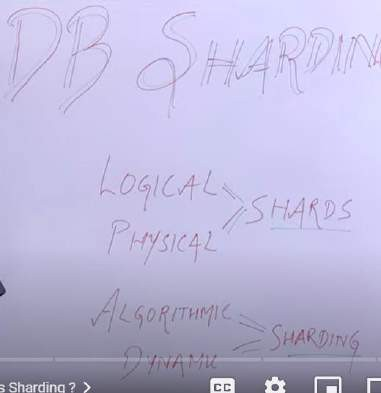 DB SHARDIN
LOGICAL
PHYSICAL
SHARDS
ALGORITHMIC
DYNAMIC
SHARDING
s Sharding ?
CC